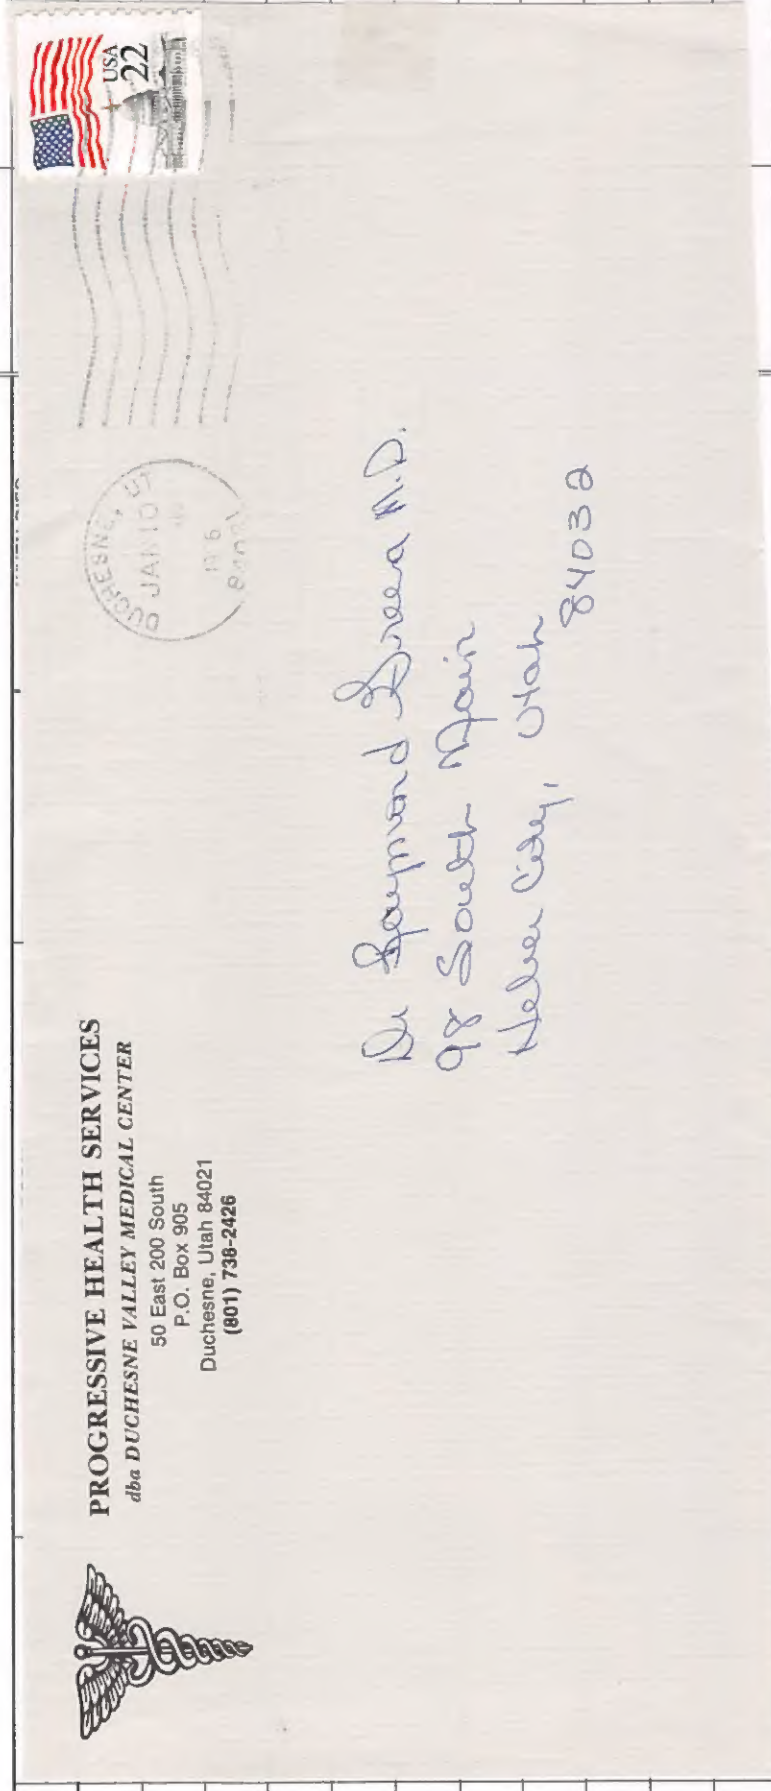 PROGRESSIVE HEALTH SERVICES
dba DUCHESNE VALLEY MEDICAL CENTER
50 East 200 South
P.O. Box 905
Duchesne, Utah 84021
(801) 738-2426
USA
22
DUCHESNE, UT
JAN 10
84021
Dr Raymond Green M.D.
98 South Main
Heber City, Utah
84032